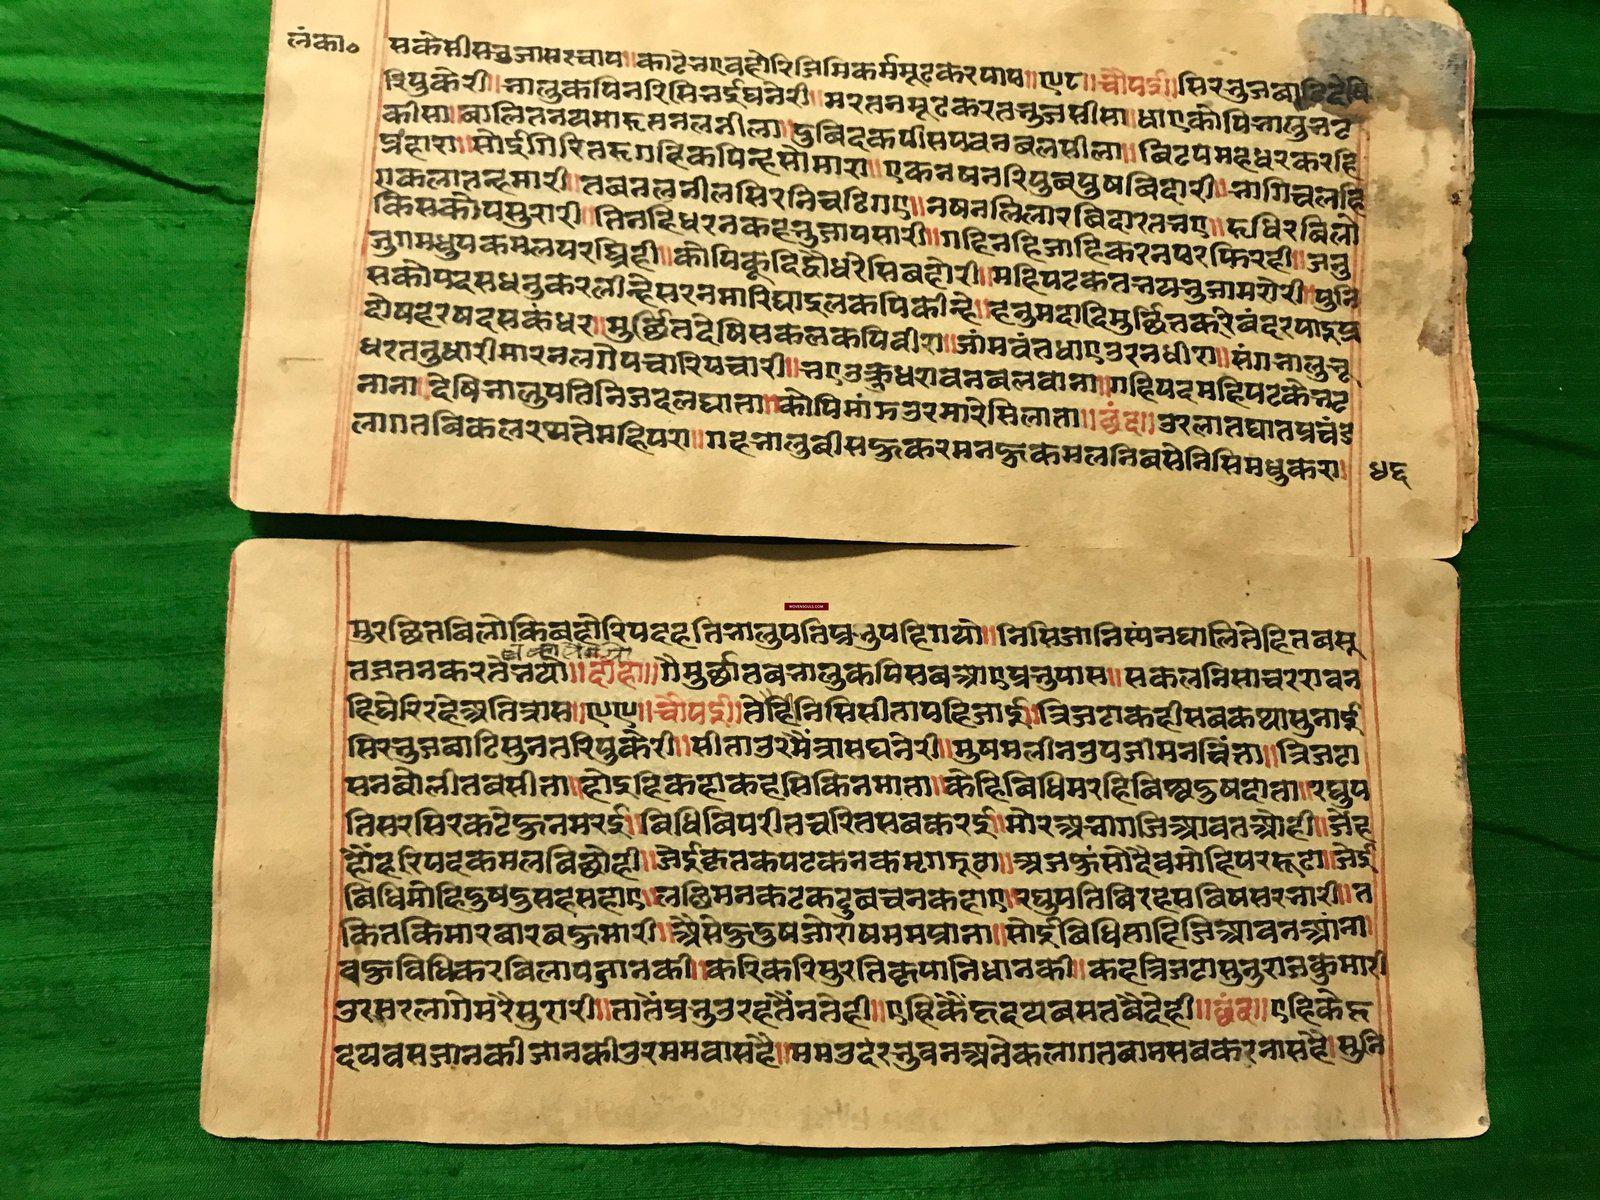 लंका०
सकेसीसभुजासरचाप॥काटेभएबहोरिजिमिकर्ममूढकरपाप॥९८॥चौपई॥सिरभुजबाढिदेषि
रिपुकेरी॥भालुकपिनरिसिभईघनेरी॥मरतनमूढकरतभुजसीसा॥धाएकोपिभालुभट
कीसा॥बालितनयमारुतनलनीला॥दुबिदकपीसपवनबलसीला॥बिटपमहधरकरहि
प्रंहारा॥सोईगिरितरुगहिकपिन्हसोमारा॥एकनषनरिपुबपुषबिदारी॥भागिचलहि
एकलातन्हमारी॥तबनलनीलसिरनिचढिगए॥नषनलिलारबिदारतभए॥रुधिरबिलो
किसकोपसुरारी॥तिनहिधरनकहभुजापसारी॥गहिनहिजाहिकरनपरफिरही॥जनु
जुगमधुपकमलपरघ्रिही॥कोपिकूदिद्वौधरेसिबहोरी॥महिपटकतभयभुजामरोरी॥पुनि
सकोपदसधनुकरलीन्हेसरनमारिघाइलकपिकीन्हे॥हनुमदादिमुर्छितकरिबंदरपाइप्र
दोषहरषदसकंधर॥मुर्छितदेषिसकलकपिबीरा॥जांमवंतधाएउरनधीरा॥संगभालुभू
धरतनुधारीमारनलगेपचारिपचारी॥भएउक्रुधरावनबलवाना॥गहिपदमहिपटकैभट
नाना॥देषिभालुपतिनिजदलघाता॥कोपिमांझउरमारेसिलाता॥छंदा॥उरलातघातप्रचंड
लागतबिकलरथतेमहिपरा॥गहभालुबीसहुकरमनहुकमलनिबसेनिसिमधुकरा॥ ५६
मुरछितबिलोकिबहोरिपदहतिभालुपतिप्रभुपहिगयो॥निसिजानिस्यंनघालितेहितबसू
तजतनकरतेभयो॥दोहा॥गैमुर्छातबभालुकपिसबआएप्रभुपास॥सकलनिसाचररावन
हिघेरिरहेअतित्रास॥९९॥चौपई॥तेहिनिसिसीतापहिजाई॥त्रिजटाकहीसबकथासुनाई
सिरभुजबाढिसुनतरिपुकेरी॥सीताउरभैत्रासघनेरी॥मुषमलीनउपजीमनचिंता॥त्रिजटा
सनबोलीतबसीता॥होइहिकहाकहसिकिनमाता॥केहिबिधिमरहिबिस्वदुषदाता॥रघुप
तिसरसिरकटेहुनमरई॥बिधिबिपरीतचरितसबकरई॥मोरअभागजिआवतओही॥जेंह
हौंहरिपदकमलबिछोही॥जेईकृतकपटकनकमृगझूठा॥अजहुंसोदैवमोहिपररूठा॥जेई
बिधिमोहिदुषदुसहसहाए॥लछिमनकटकदुबचनकहाए॥रघुपतिबिरहसबिषसरभारी॥त
कितकिमारबारबहुमारी॥अैसेहुदुषजोराषममप्राना॥सोईबिधिताहिजिआवनआंना॥
बहुबिधिकरबिलापजानकी॥करिकरिसुरतिकृपानिधानकी॥कहत्रिजटासुनुराजकुमारी
उरसरलागेमरैसुरारी॥तातेंप्रभुउरहतैंनतेही॥एहिकेंह्रदयबसतबैदेही॥छंद॥एहिकेह्र
दयबसजानकीजानकीउरममबासहै॥ममउदरभुवनअनेकलागतबानसबकरनासहै॥सुनि